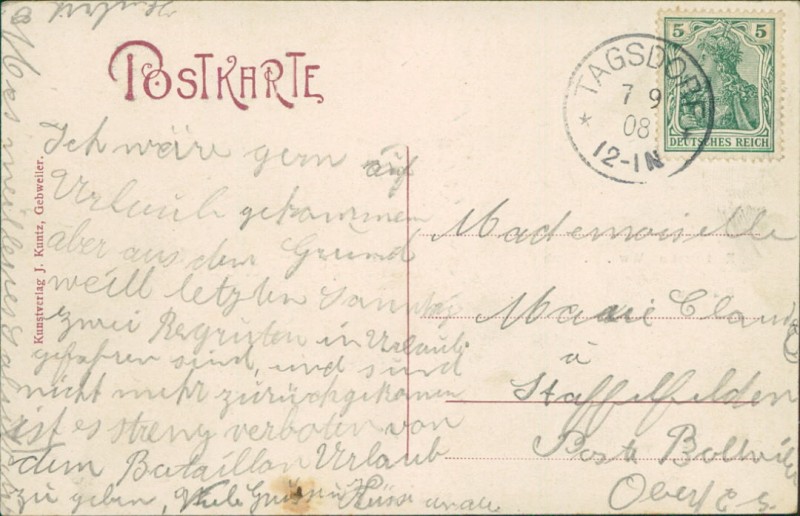 POSTKARTE
Kunstverlag J. Kuntz, Gebweiler.
5 5
DEUTSCHES REICH
* TAGSDORF
7 9
08
12-1N
Ich wäre gern auf
Urlaub gekommen
aber aus dem Grund
weill letzten Sonntag
zwei Regruten in Urlaub
gefahren sind, und sind
nicht mehr zurückgekomen
ist es streng verboten von
dem Bataillon Urlaub
zu geben, Viele Grüsse Küsse
Mademoiselle
Marie Claud
à
Staffelfelden
Post Bollwil
Ober